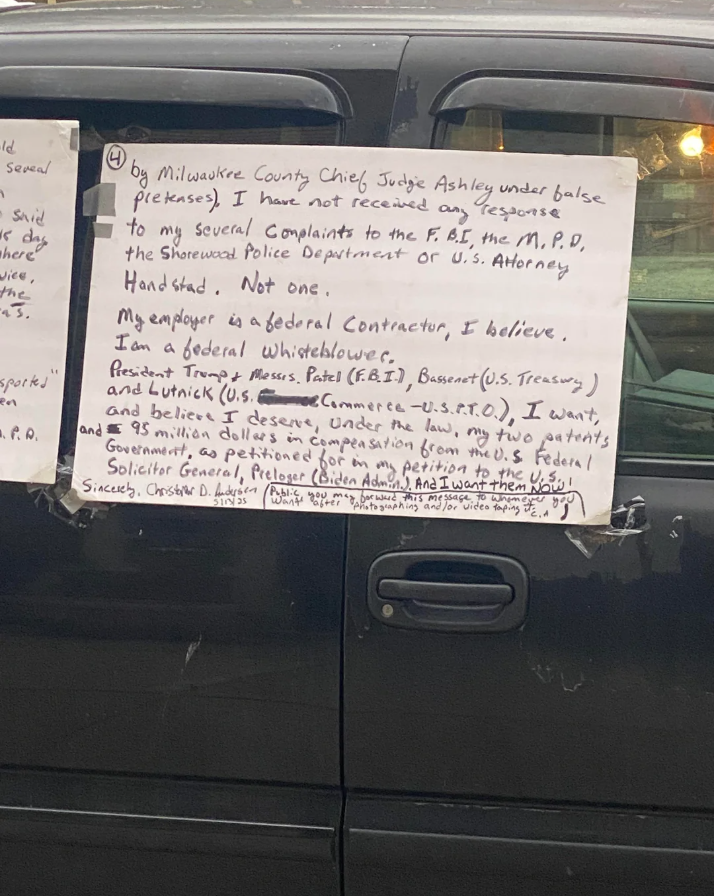 ld
seveal
said
day
where
vice,
the
as.
sported"
en
. P. D.
④ by Milwaukee County Chief Judge Ashley under false
pretenses), I have not received any response
to my several Complaints to the F.B.I, the M.P.D,
the Shorewood Police Department or U.S. Attorney
Handstad. Not one.
My employer is a federal Contractor, I believe.
I am a federal whisteblower.
President Trump & Messrs. Patel (F.B.I.), Bassenet (U.S. Treasury)
and Lutnick (U.S. Commerce - U.S.P.T.O.), I want,
and believe I deserve, under the law, my two patents
and 95 million dollars in compensation from the U.S Federal
Government, as petitioned for in my petition to the U.S.
Solicitor General, Preloger (Biden Admin.). And I want them Now!
Sincerely, Christopher D. Anderson
Public, you may forward this message to whomever you
want after photographing and/or video taping it.
C.A